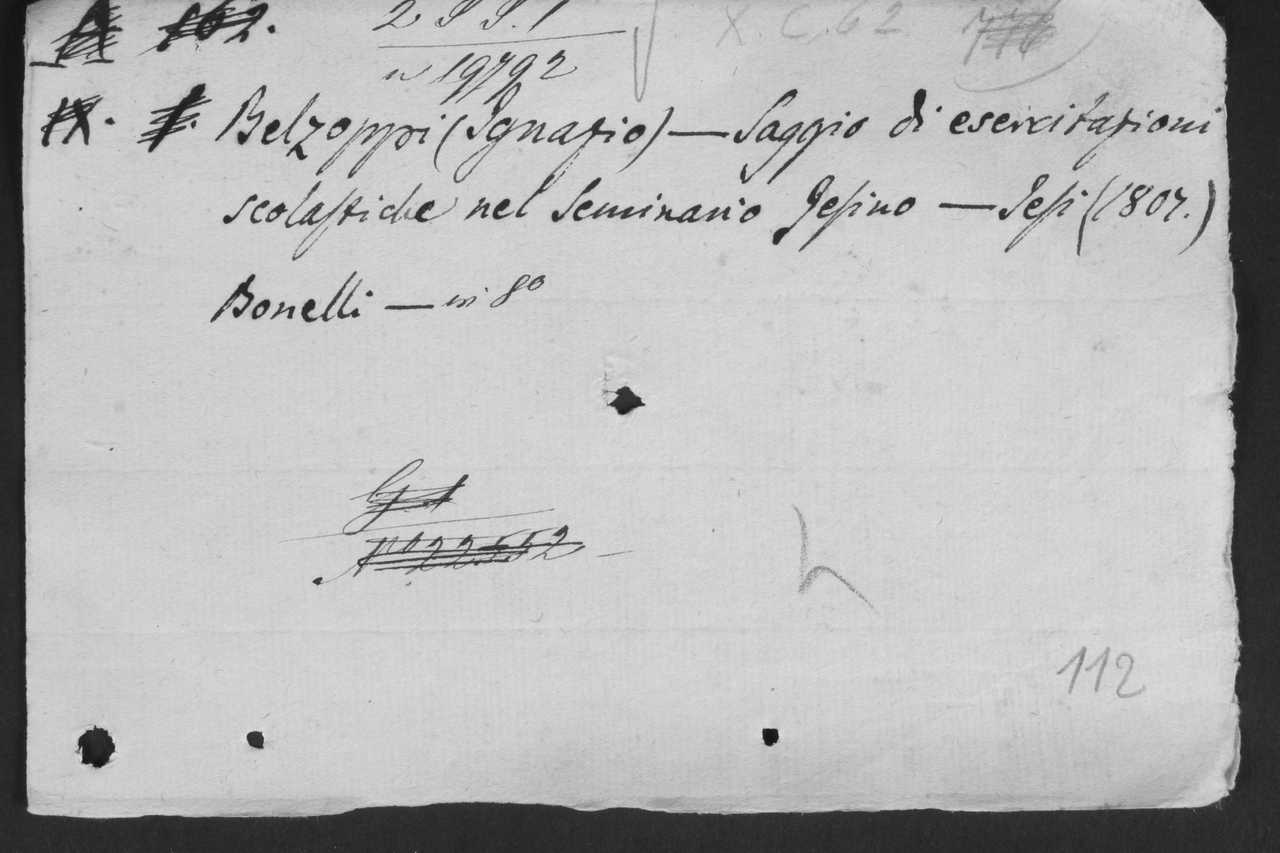 A 162. 2 S S. 1 X. C. 62
n 19792
IX. f. Belzoppi (Ignazio) — Saggio di esercitazioni
scolastiche nel Seminario Jesino — Jesi (1807.)
Bonelli — in 8o
G. 1
No 22552
112